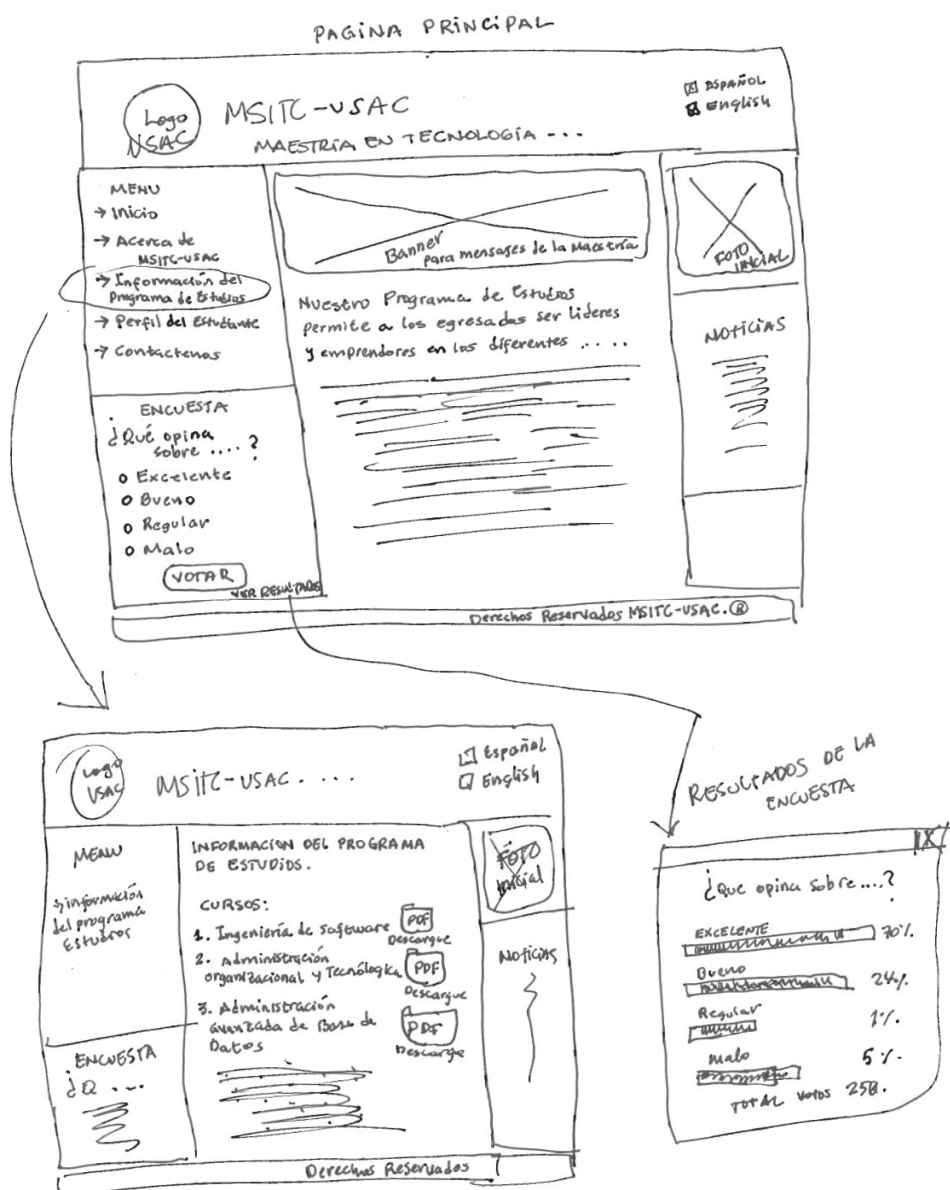 PAGINA PRINCIPAL
Logo
USAC
MSITC-USAC
MAESTRIA EN TECNOLOGÍA ---
ESPAÑOL
English
MENU
→ Inicio
→ Acerca de
MSITC-USAC
→ Información del
Programa de Estudios
→ Perfil del Estudiante
→ Contactenos
ENCUESTA
¿Qué opina
sobre .... ?
Excelente
Bueno
Regular
Malo
VOTAR
VER RESULTADOS
Banner
para mensajes de la Maestría
Nuestro Programa de Estudios
permite a los egresados ser lideres
y emprendores en los diferentes ....
FOTO
INICIAL
NOTICIAS
Derechos Reservados MSITC-USAC. ®
Logo
USAC
MSITC-USAC. ...
Español
English
MENU
→ información
del programa
Estudios
ENCUESTA
¿Q ...
INFORMACION DEL PROGRAMA
DE ESTUDIOS.
CURSOS:
1. Ingeniería de Software
PDF
Descargue
2. Administración
organizacional y Tecnólogica
PDF
Descargue
3. Administración
avanzada de Base de
Datos
PDF
Descargue
FOTO
inicial
NOTICIAS
Derechos Reservados
RESULTADOS DE LA
ENCUESTA
X
¿Que opina sobre....?
EXCELENTE
70%.
Bueno
24%.
Regular
1%.
malo
5%.
TOTAL votos